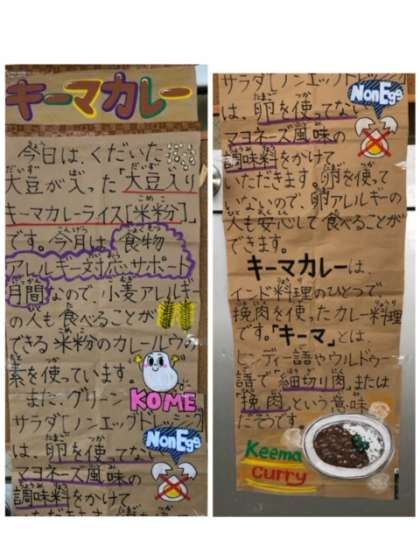 キーマカレー
今日は、くだいた
大豆が入った「大豆入り
キーマカレーライス[米粉]」
です。今月は、食物
アレルギー対応サポート
月間なので、小麦アレルギー
の人も食べることが
できる米粉のカレールウの
素を使っています。
また、グリーン
KOME
サラダ[ノンエッグドレッシング]
NonEgg
は、卵を使ってない
マヨネーズ風味の
調味料をかけて
サラダ[ノンエッグドレッシング]
NonEgg
は、卵を使ってない
マヨネーズ風味の
調味料をかけて
いただきます。卵を使って
いないので、卵アレルギーの
人も安心して食べることが
できます。
キーマカレーは、
インド料理のひとつで
挽肉を使ったカレー料理
です。「キーマ」とは
ヒンディー語やウルドゥー
語で「細切り肉」または
「挽肉」という意味
だそうです。
Keema
curry